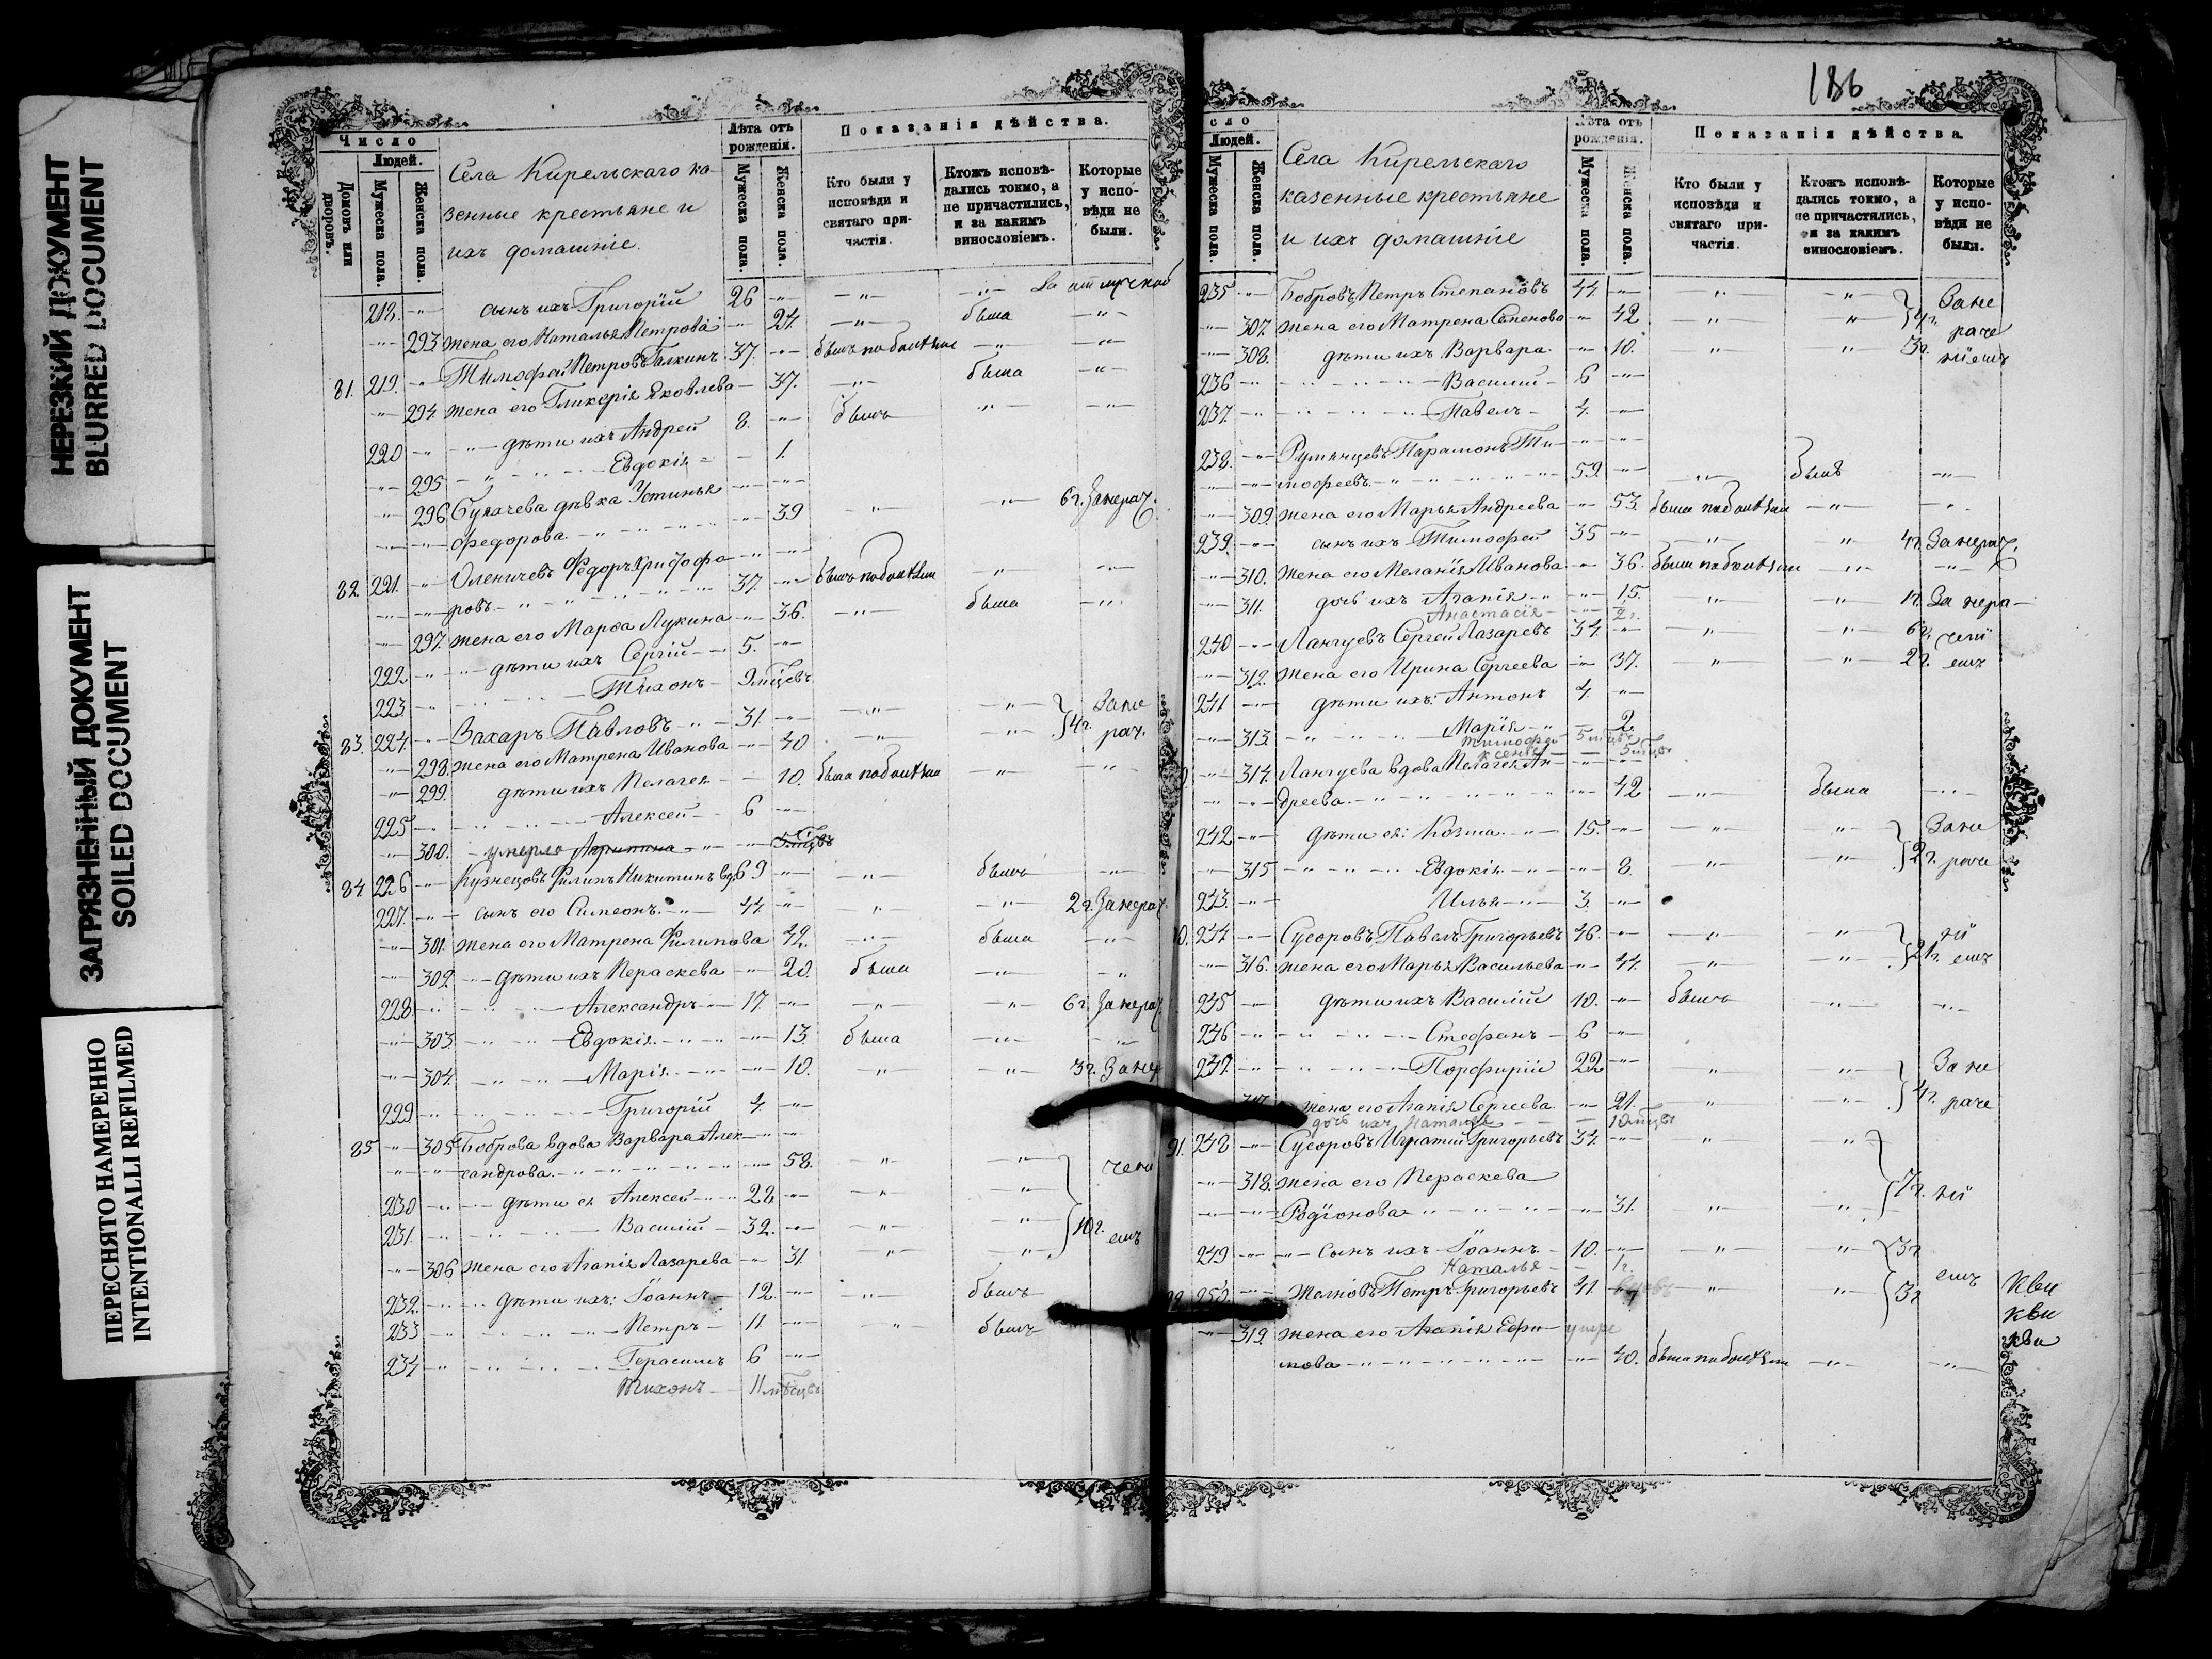 НЕРЕЗКИЙ ДОКУМЕНТ
BLURRED DOCUMENT
ЗАГРЯЗНЕННЫЙ ДОКУМЕНТ
SOILED DOCUMENT
ПЕРЕСНЯТО НАМЕРЕННО
INTENTIONALLI REFILMED
Число
Людей.
Домовъ или дворовъ.
Мужеска пола.
Женска пола.
Села Кирельскаго ка-
зенные крестьяне и
ихъ домашніе.
Лѣта отъ рожденія.
Мужеска пола.
Женска пола.
Показанія дѣйства.
Кто были у исповѣди и святаго при-частія.
Ктожъ исповѣ-дались токмо, а не причастились, и за какимъ винословіемъ.
Которые у испо-вѣди не были.
218. сынъ ихъ Григорій 26 За отлучкой
293 жена его Наталья Петрова 24. была
81. 219. Тимофей Петровъ Галкинъ 37. былъ
294. жена его Гликерія Яковлева 37. была
220 дѣти ихъ Андрей 8. былъ
295 Евдокія 1.
296 дѣвка Устинья
Федорова 39 6 г. За нерач.
82. 221. Оленичевъ Федоръ Христофо-
ровъ 37. былъ
297. жена его Марѳа Лукина 36. была
222. дѣти ихъ Сергій 5.
223. Тихонъ 9 мѣсцевъ
83. 224. Захаръ Павловъ 31. } 4 г. За не
298. жена его Матрена Иванова 40 рач.
299. дѣти ихъ Пелагея 10. была
225 Алексей 6
300. умерла 5 мѣсцевъ
84 226 Кузнецовъ Филипъ Никитинъ вд. 69 былъ
227. сынъ его Симеонъ 44. 2 г. За нерач.
301. жена его Матрена Филипова 42. была
302. дѣти ихъ Параскева 20. была
228 Александръ 17. 6 г. За нерач.
303. Евдокія 13. была
304. Марія 10. 3 г. За нер
229 Григорій 4.
85 305 Боброва вдова Варвара Алек-
сандрова 58.
230 дѣти ея Алексей 22
231. Василій 32. } 10 г.
306 жена его Агапія Лазарева 31.
232. дѣти ихъ: Іоаннъ 12. былъ
233 Петръ 11 былъ
234 Герасимъ 6
Тихонъ 11 мѣсцевъ
186
сло
Людей.
Мужеска пола.
Женска пола.
Села Кирельскаго
казенные крестьяне
и ихъ домашніе
Лѣта отъ рожденія.
Мужеска пола.
Женска пола.
Показанія дѣйства.
Кто были у исповѣди и святаго при-частія.
Ктожъ исповѣ-дались токмо, а не причастились, и за какимъ винословіемъ.
Которые у испо-вѣди не были.
235 Бобровъ Петръ Степановъ 44. } 4 г. За не
307. жена его Матрена Семенова 42 раче
308. дѣти ихъ Варвара 10. 3 г. ніемъ
236 Василий 6
237. Павелъ 4.
238. Румянцевъ Парамонъ Ти-
мофеевъ 59. былъ
309. жена его Марья Андреева 53. была
239. сынъ ихъ Тимофей 35 4 г. За нерач.
310. жена его Меланія Иванова 36. была
311. дочь ихъ Агапія 15. 1 г. За нера-
Анастасія 2 г.
240 Лангуевъ Сергей Лазаревъ 34. 6 г. чені
312. жена его Ирина Сергеева 37. 2 г. емъ
241 дѣти ихъ: Антонъ 4.
313. Марія 2
Тимофей 5 мѣсцевъ
Ксенія 5 мѣсцевъ
314. Лангуева вдова Пелагея Ан-
дреева 42 была
242 дѣти ея: Козма 15. } 2 г. За не
315 Евдокія 8. раче
243. Илья 3.
244 Сусоровъ Павелъ Григорьевъ 46. ні
316. жена его Марья Васильева 44. емъ
245 дѣти ихъ Василій 10. былъ
246 Стефанъ 6
247. Порфирій 22 } 4 г. За не
жена его Агапія Сергеева 21. раче
дочь ихъ Наталія 10 мѣсцевъ
91. 248 Сусоровъ Игнатій Григорьевъ 34.
318. жена его Параскева
Родіонова 31. } 7 г. ні
249 сынъ ихъ Іоаннъ 10. 3 г.
Наталья 1 г.
250. Петръ Григорьевъ 41. } 3 г. емъ
319. жена его Агапія Ефи- умре
мова 40. была